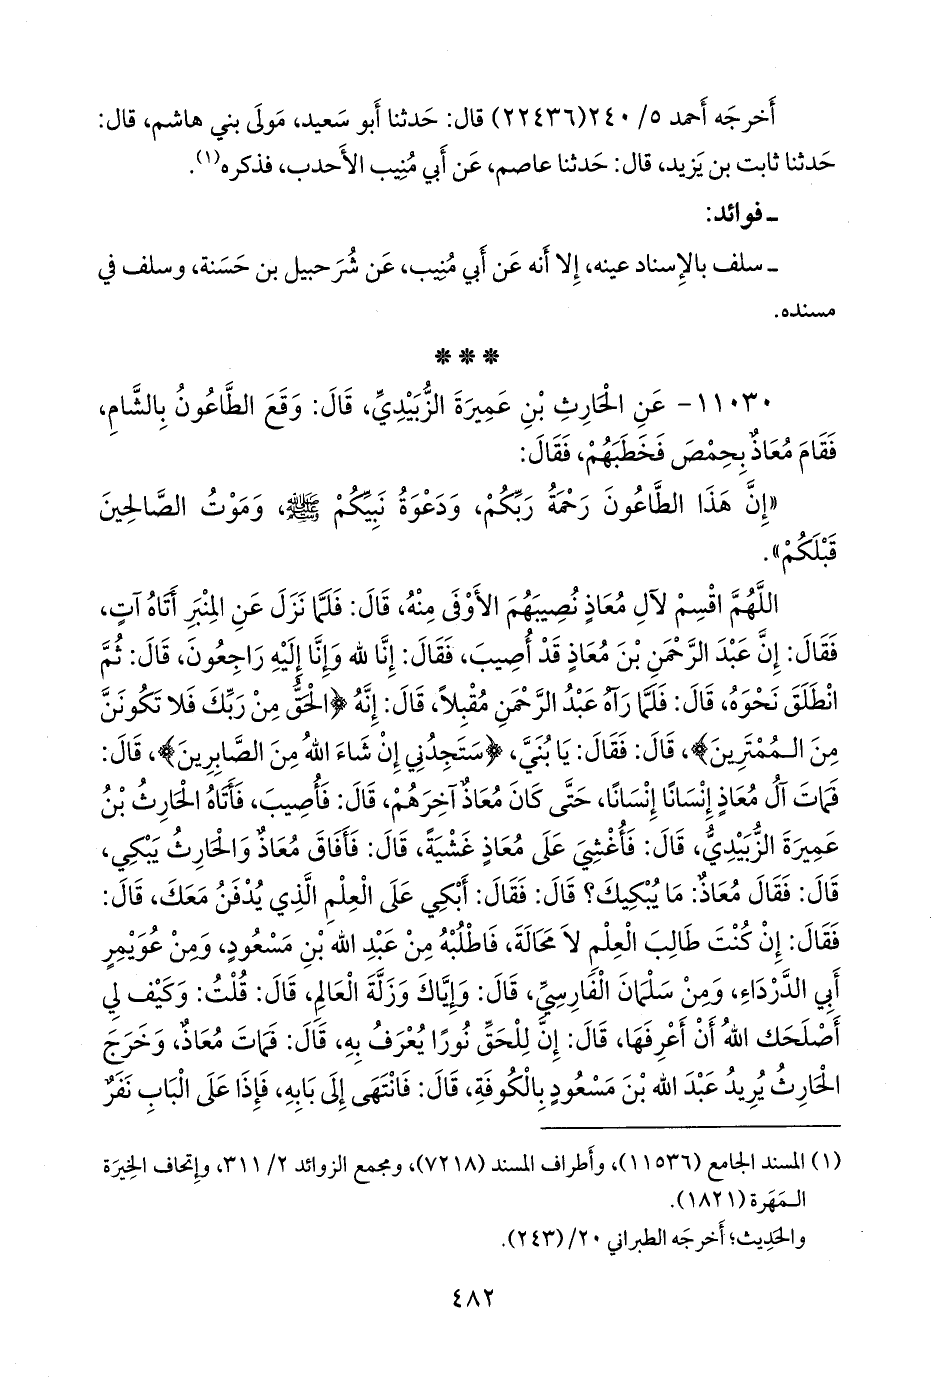 أَخرجَه أَحمد ٥/ ٢٤٠(٢٢٤٣٦) قال: حَدثنا أَبو سَعيد، مَولَى بني هاشم، قال:
حَدثنا ثابت بن يَزيد، قال: حَدثنا عاصم، عَن أَبي مُنِيب الأَحدب، فذكره(١).
ـ فوائد:
ـ سلف بالإِسناد عينه، إِلا أَنه عَن أَبي مُنِيب، عَن شُرَحبيل بن حَسَنة، وسلف في
مسنده.
* * *
١١٠٣٠- عَنِ الْحَارِثِ بْنِ عَمِيرَةَ الزُّبَيْدِيِّ، قَالَ: وَقَعَ الطَّاعُونُ بِالشَّامِ،
فَقَامَ مُعَاذٌ بِحِمْصَ فَخَطَبَهُمْ، فَقَالَ:
«إِنَّ هَذَا الطَّاعُونَ رَحْمَةُ رَبِّكُمْ، وَدَعْوَةُ نَبِيِّكُمْ ﷺ، وَمَوْتُ الصَّالِحِينَ
قَبْلَكُمْ».
اللَّهُمَّ اقْسِمْ لآلِ مُعَاذٍ نُصِيبَهُمَ الأَوْفَى مِنْهُ، قَالَ: فَلَمَّا نَزَلَ عَنِ المِنْبَرِ أَتَاهُ آتٍ،
فَقَالَ: إِنَّ عَبْدَ الرَّحْمَنِ بْنَ مُعَاذٍ قَدْ أُصِيبَ، فَقَالَ: إِنَّا لله وَإِنَّا إِلَيْهِ رَاجِعُونَ، قَالَ: ثُمَّ
انْطَلَقَ نَحْوَهُ، قَالَ: فَلَمَّا رَآهُ عَبْدُ الرَّحْمَنِ مُقْبِلاً، قَالَ: إِنَّهُ ﴿الْحَقُّ مِنْ رَبِّكَ فَلا تَكُونَنَّ
مِنَ الْـمُمْتَرِينَ﴾، قَالَ: فَقَالَ: يَا بُنَيَّ، ﴿سَتَجِدُنِي إِنْ شَاءَ اللهُ مِنَ الصَّابِرِينَ﴾، قَالَ:
فَمَاتَ آلُ مُعَاذٍ إِنْسَانًا إِنْسَانًا، حَتَّى كَانَ مُعَاذٌ آخِرَهُمْ، قَالَ: فَأُصِيبَ، فَأَتَاهُ الْحَارِثُ بْنُ
عَمِيرَةَ الزُّبَيْدِيُّ، قَالَ: فَأُغْشِيَ عَلَى مُعَاذٍ غَشْيَةً، قَالَ: فَأَفَاقَ مُعَاذٌ وَالْحَارِثُ يَبْكِي،
قَالَ: فَقَالَ مُعَاذٌ: مَا يُبْكِيكَ؟ قَالَ: فَقَالَ: أَبْكِي عَلَى الْعِلْمِ الَّذِي يُدْفَنُ مَعَكَ، قَالَ:
فَقَالَ: إِنْ كُنْتَ طَالِبَ الْعِلْمِ لاَ مَحَالَةَ، فَاطْلُبْهُ مِنْ عَبْدِ الله بْنِ مَسْعُودٍ، وَمِنْ عُوَيْمِرٍ
أَبِي الدَّرْدَاءِ، وَمِنْ سَلْمَانَ الْفَارِسِيِّ، قَالَ: وَإِيَّاكَ وَزَلَّةَ الْعَالِمِ، قَالَ: قُلْتُ: وَكَيْف لِي
أَصْلَحَك اللهُ أَنْ أَعْرِفَهَا، قَالَ: إِنَّ لِلْحَقِّ نُورًا يُعْرَفُ بِهِ، قَالَ: فَمَاتَ مُعَاذٌ، وَخَرَجَ
الْحَارِثُ يُرِيدُ عَبْدَ الله بْنَ مَسْعُودٍ بِالْكُوفَةِ، قَالَ: فَانْتَهَى إِلَى بَابِهِ، فَإِذَا عَلَى الْبَابِ نَفَرٌ
(١) المسند الجامع (١١٥٣٦)، وأَطراف المسند (٧٢١٨)، ومجمع الزوائد ٢/ ٣١١، وإِتحاف الخِيرَة
الـمَهَرة (١٨٢١).
والحَدِيث؛ أَخرجَه الطبراني ٢٠/(٢٤٣).
٤٨٢